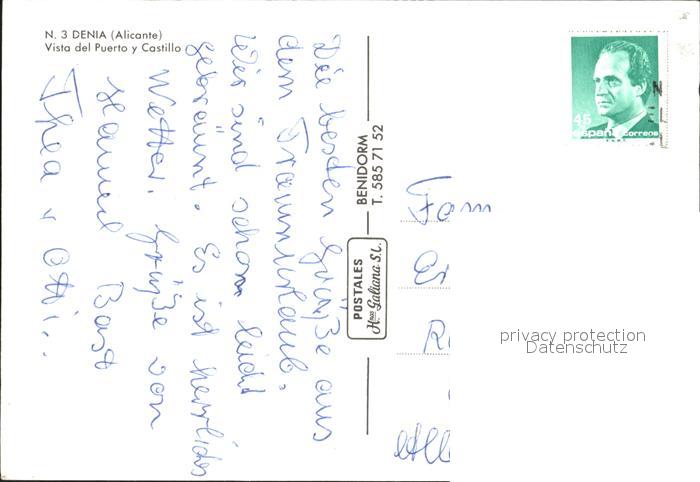 N. 3 DENIA (Alicante)
Vista del Puerto y Castillo
Die besten Grüße aus
dem Traumurlaub.
Wir sind schon leicht
gebräunt. Es ist herrliches
Wetter. Grüße von
Bast
Thea u Otti.
BENIDORM
T. 585 71 52
POSTALES
Hnos Galiana S.L.
45
españa correos
Fam
privacy protection
Datenschutz